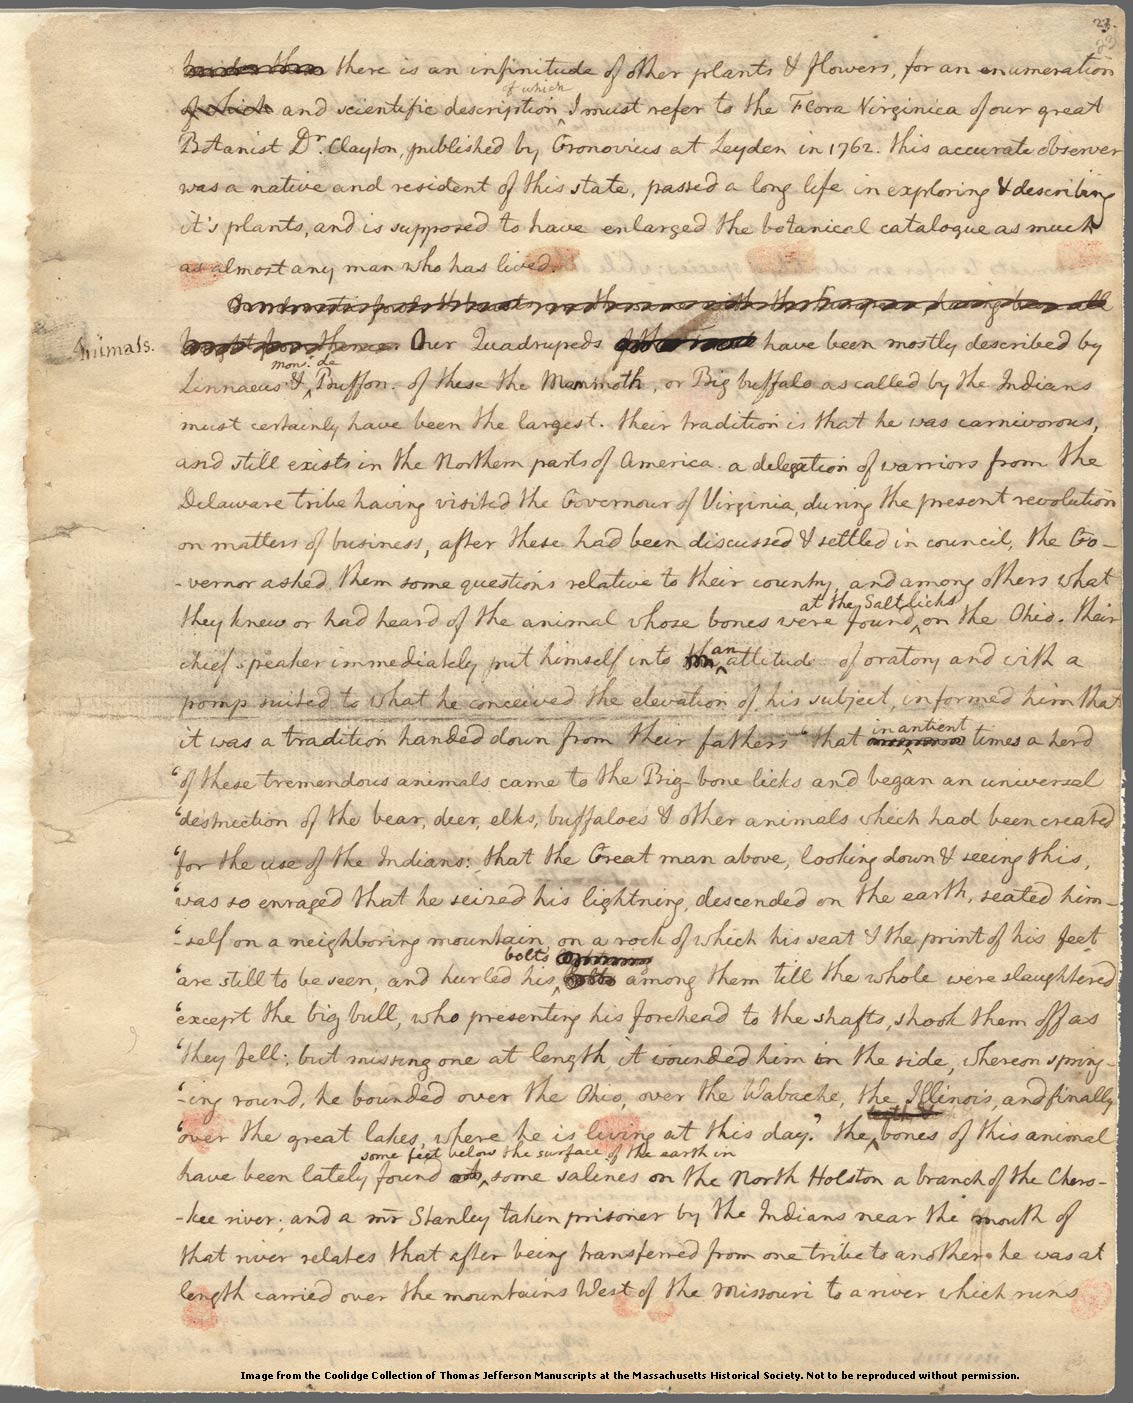 23.
there is an infinitude of other plants & flowers, for an enumeration
of which
of which and scientific description I must refer to the Flora Virginica of our great
Botanist Dr. Clayton, published by Gronovius at Leyden in 1762. this accurate observer
was a native and resident of this state, passed a long life in exploring & describing
it's plants, and is supposed to have enlarged the botanical catalogue as much
as almost any man who has lived.
Animals.
Our Quadrupeds have been mostly described by
mons. de
Linnaeus & Buffon. of these the Mammoth, or Big buffalo as called by the Indians
must certainly have been the largest. their tradition is that he was carnivorous,
and still exists in the Northern parts of America. a delegation of warriors from the
Delaware tribe having visited the Governour of Virginia, during the present revolution
on matters of business, after these had been discussed & settled in council, the Go-
-vernor asked them some questions relative to their country, and among others what
at the Saltlicks
they knew or had heard of the animal whose bones were found on the Ohio. their
an
chief speaker immediately put himself into attitude of oratory and with a
pomp suited to what he conceived the elevation of his subject, informed him that
in antient
it was a tradition handed down from their fathers 'that times a herd
'of these tremendous animals came to the Big-bone licks and began an universal
'destruction of the bear, deer, elks, buffaloes & other animals which had been created
'for the use of the Indians: that the Great man above, looking down & seeing this,
'was so enraged that he seized his lightning, descended on the earth, seated him-
'-self on a neighboring mountain, on a rock of which his seat & the print of his feet
bolts
'are still to be seen, and hurled his bolts among them till the whole were slaughtered
'except the big bull, who presenting his forehead to the shafts, shook them off as
'they fell; but missing one at length, it wounded him in the side, whereon spring-
'-ing round, he bounded over the Ohio, over the Wabache, the Illinois, and finally
teeth &
'over the great lakes, where he is living at this day.' the bones of this animal
some feet below the surface of the earth in
have been lately found some salines on the North Holston a branch of the Chero-
-kee river; and a mr Stanley taken prisoner by the Indians near the mouth of
that river relates that after being transferred from one tribe to another he was at
length carried over the mountains West of the Missouri to a river which runs
Image from the Coolidge Collection of Thomas Jefferson Manuscripts at the Massachusetts Historical Society. Not to be reproduced without permission.